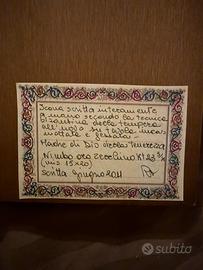 Icona scritta interamente
a mano secondo la tecnica
bizantina della tempera
all'uovo su tavola incam
motata e gessata -
Madre di Dio della Tenerezza
Nimbo oro zecchino Kt 23 ¾
(mis 15x20)
scritta giugno 2011
subito